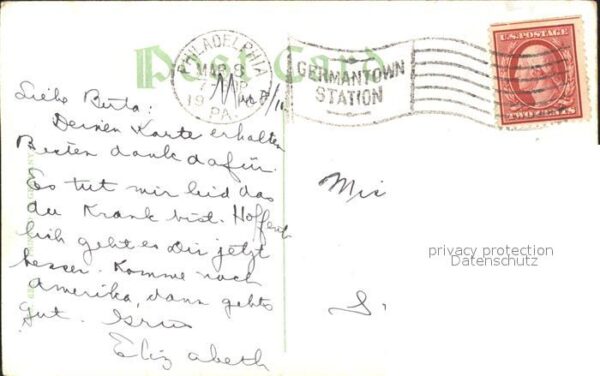 Post Card
PHILADELPHIA
MAR 8
19
PA.
GERMANTOWN
STATION
U.S. POSTAGE
TWO CENTS
Liebe Berta:
Deinen Karte erhalten
Besten dank dafür.
Es tut mir leid das
du Krank bist. Hoffent
lich geht es Dir jetzt
besser. Komme nach
Amerika, dann gehts
gut. Grus
Elizabeth
Mis
privacy protection
Datenschutz
S